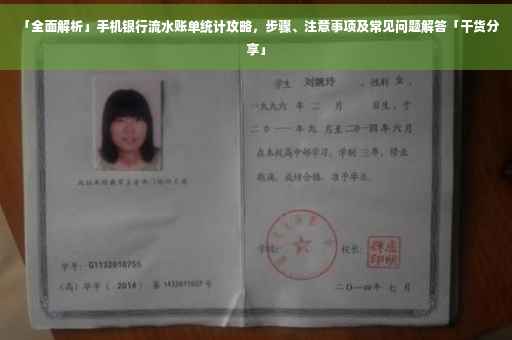 「全面解析」手机银行流水账单统计攻略，步骤、注意事项及常见问题解答「干货分
享」
学生 刘婉玲 ，性别 女 ，
一九九六 年 二 月 日生，于
二〇一一年九 月至二〇一四年 六 月
在本校高中部学习，学制 三年，修业
期满，成绩合格，准予毕业。
学校： 校长：
学号：G1132010755
（高）毕字（ 2014 ）第 1432011027 号
二〇一四年 七 月